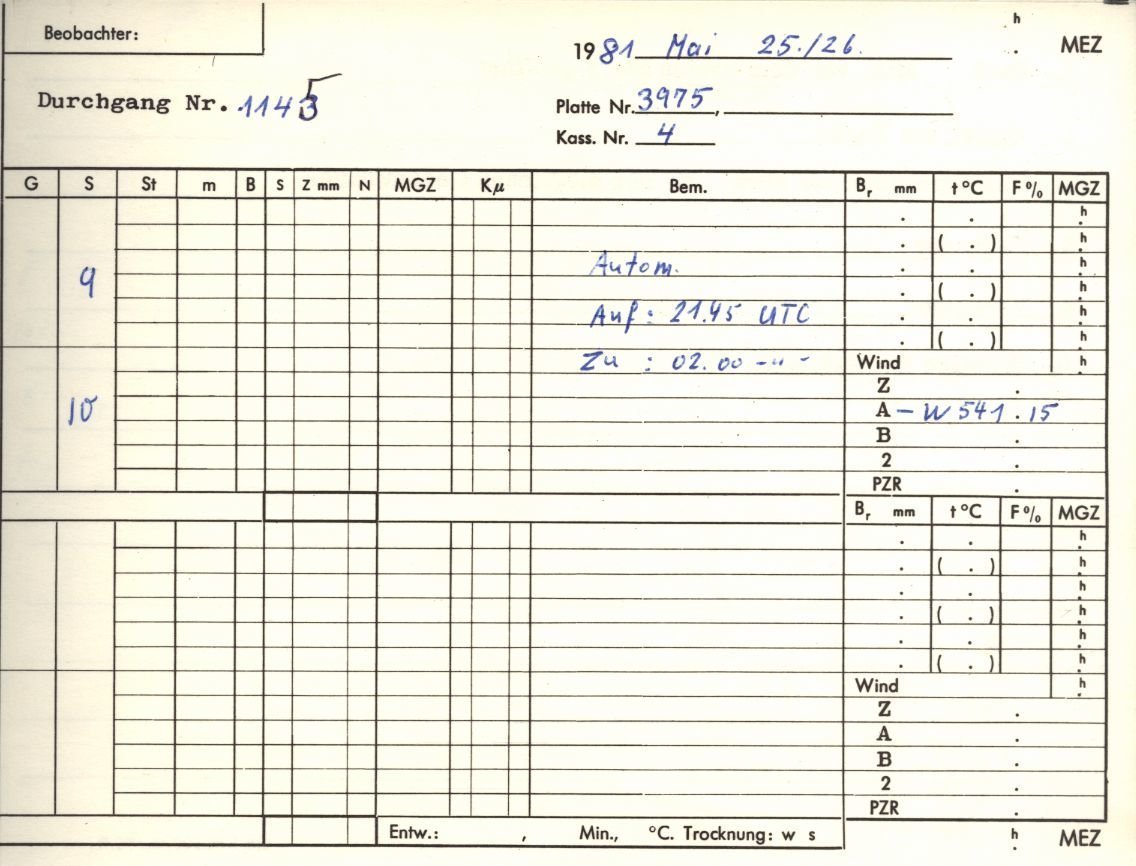 Beobachter:
h
1981 Mai 25./26. . MEZ
Durchgang Nr. 1145
Platte Nr. 3975,
Kass. Nr. 4
G S St m B S Z mm N MGZ Kμ Bem. Br mm t °C F % MGZ
. . h
. ( . ) h
Autom. . . h
9 . ( . ) h
Auf: 21.45 UTC . . h
. ( . ) h
Zu : 02.00 -"- Wind h
Z .
10 A - W 541 . 15
B .
2 .
PZR .
Br mm t °C F % MGZ
. . h
. ( . ) h
. . h
. ( . ) h
. . h
. ( . ) h
Wind h
Z .
A .
B .
2 .
PZR .
Entw.: , Min., °C. Trocknung: w s h . MEZ